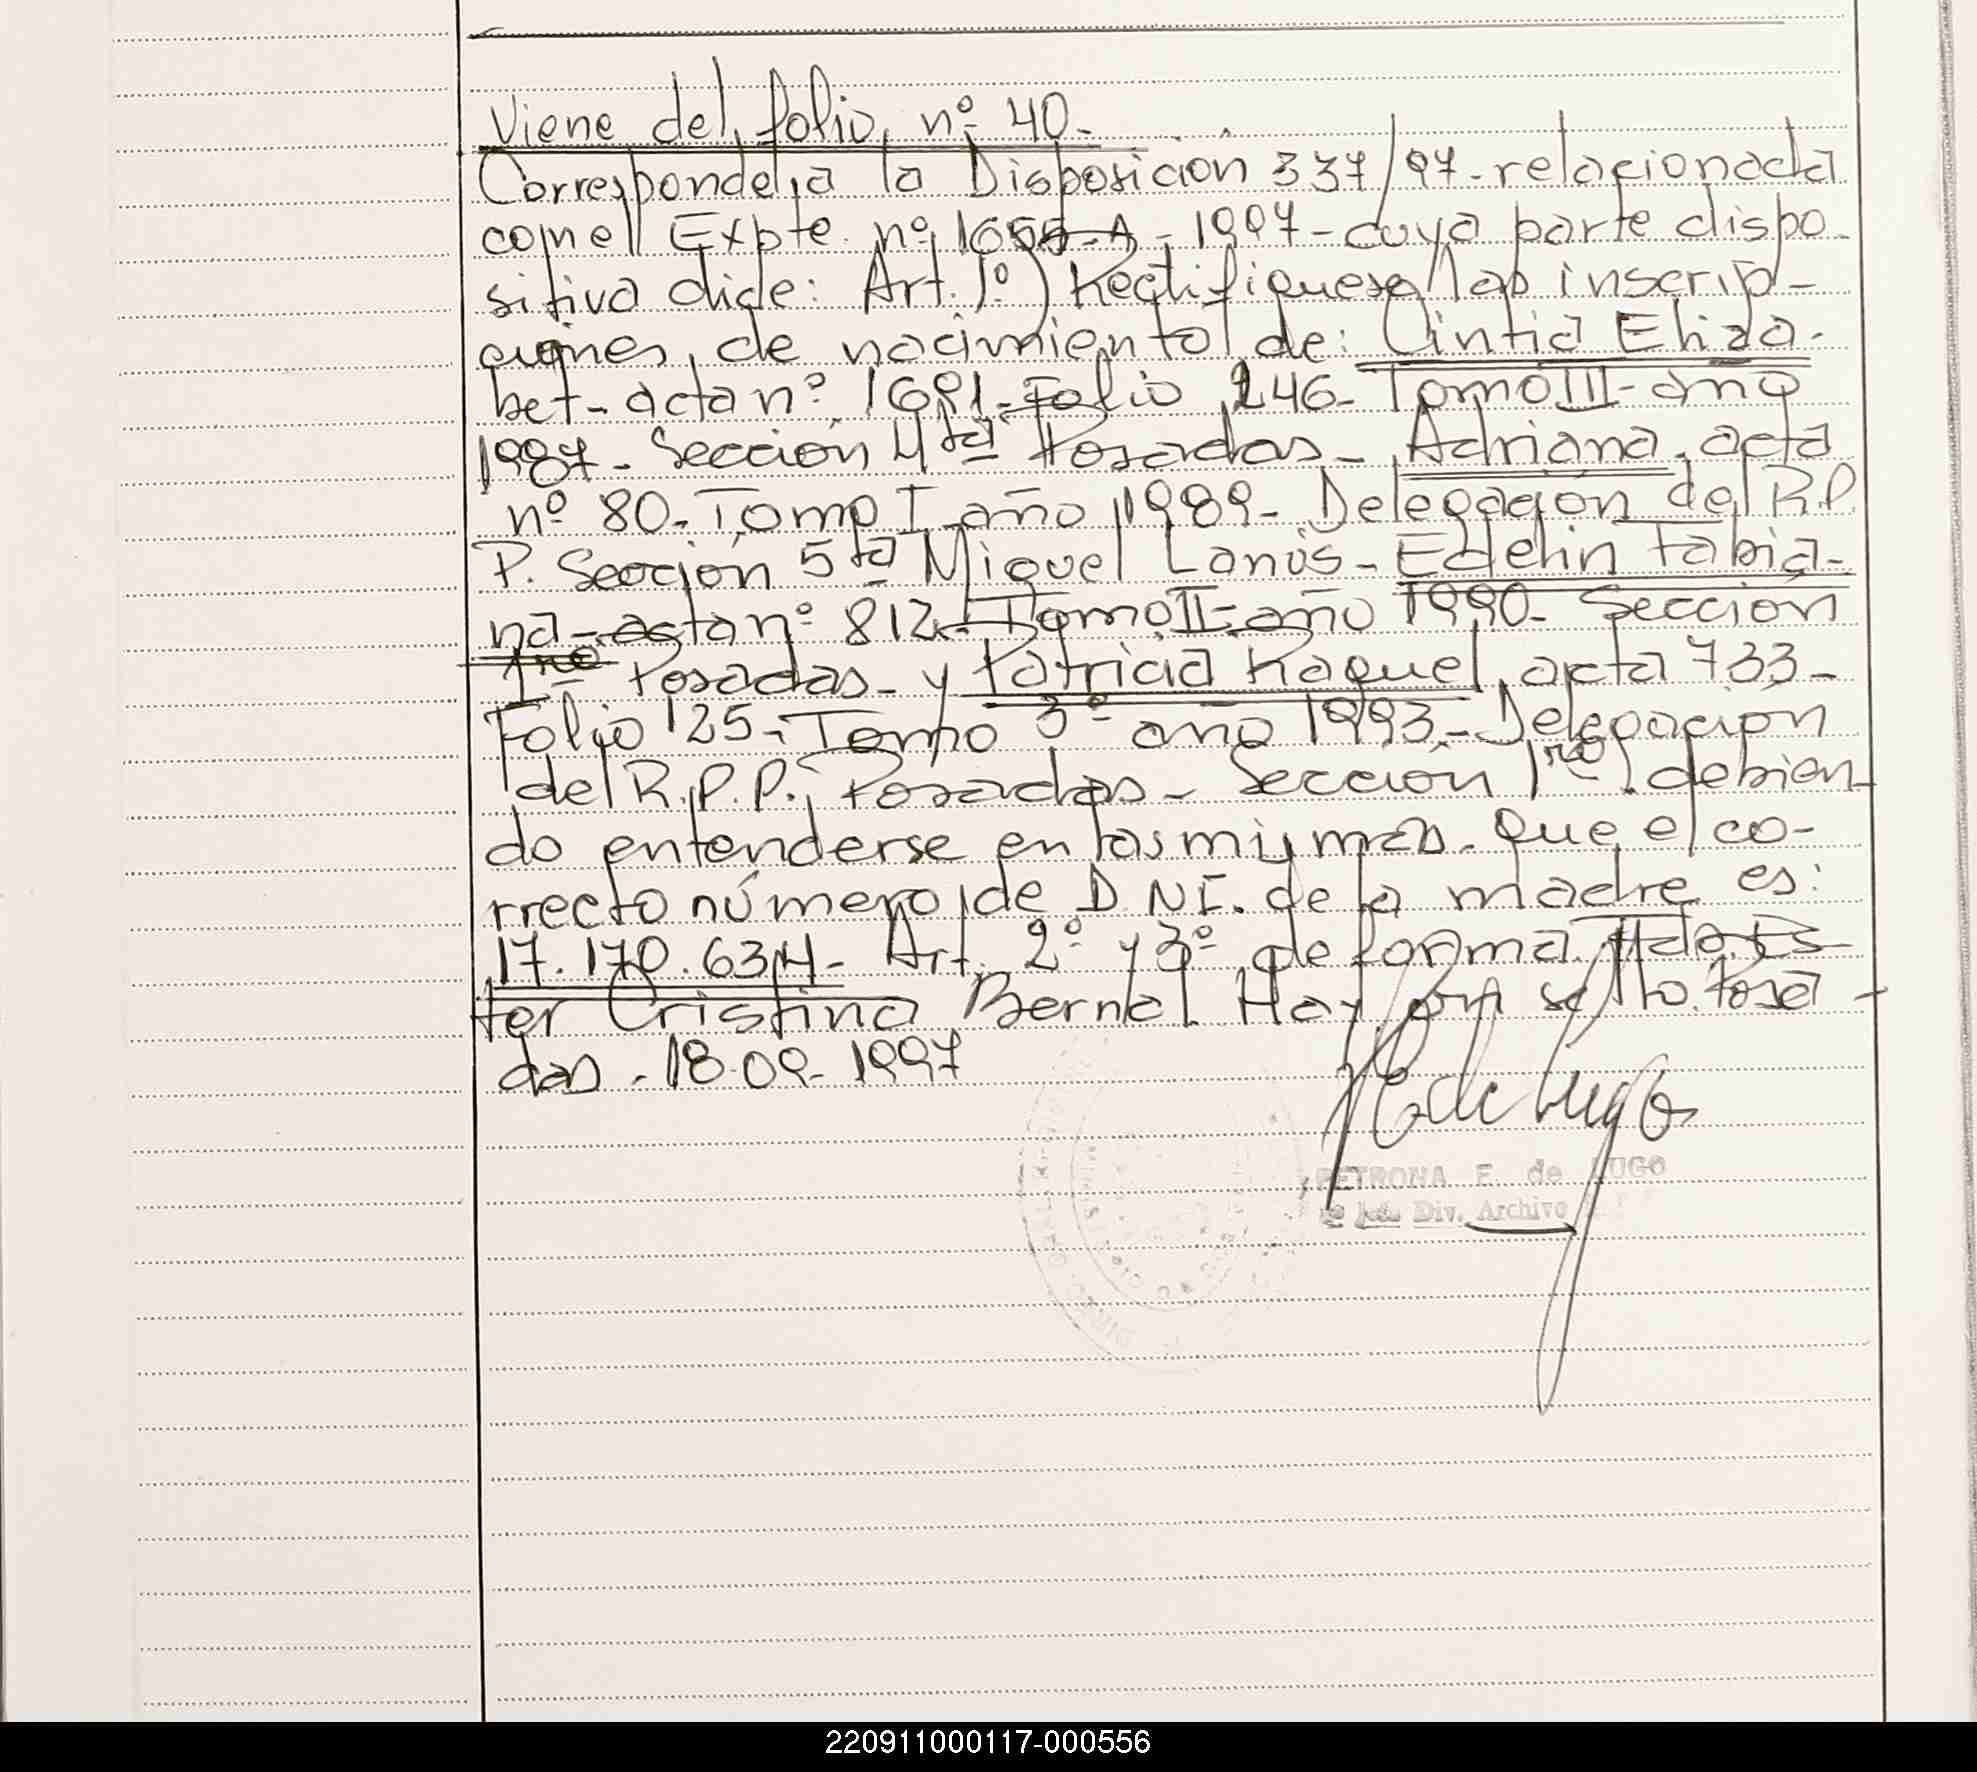 Viene del folio nº 40-
Corresponde a la Disposición 337/97- relacionada
con el Expte. nº 1655-A-1997- cuya parte dispo-
sitiva dice: Art. 1º) Rectifiquese las inscrip-
ciones de nacimiento de: Cintia Eliza-
bet- acta nº 1691- Folio 246- Tomo III- año
1987- Sección 4ta Posadas- Adriana, acta
nº 80- Tomo I año 1989- Delegación del R.P.
P. Sección 5ta Miguel Lanús- Edelin Fabia-
na- acta nº 812- Tomo II- año 1990- Sección
1ra Posadas- y Patricia Raquel, acta 733-
Folio 125- Tomo 3º año 1993- Delegación
del R.P.P. Posadas- Sección 1ra debien-
do entenderse en las mismas. Que el co-
rrecto número de D N I. de la madre es:
17.170.634- Art. 2º y 3º de forma. Fdo. Es-
ter Cristina Bernal Hay un sello. Posa-
das- 18-09-1997
PETRONA F. de LUGO
Div. Archivo
220911000117-000556